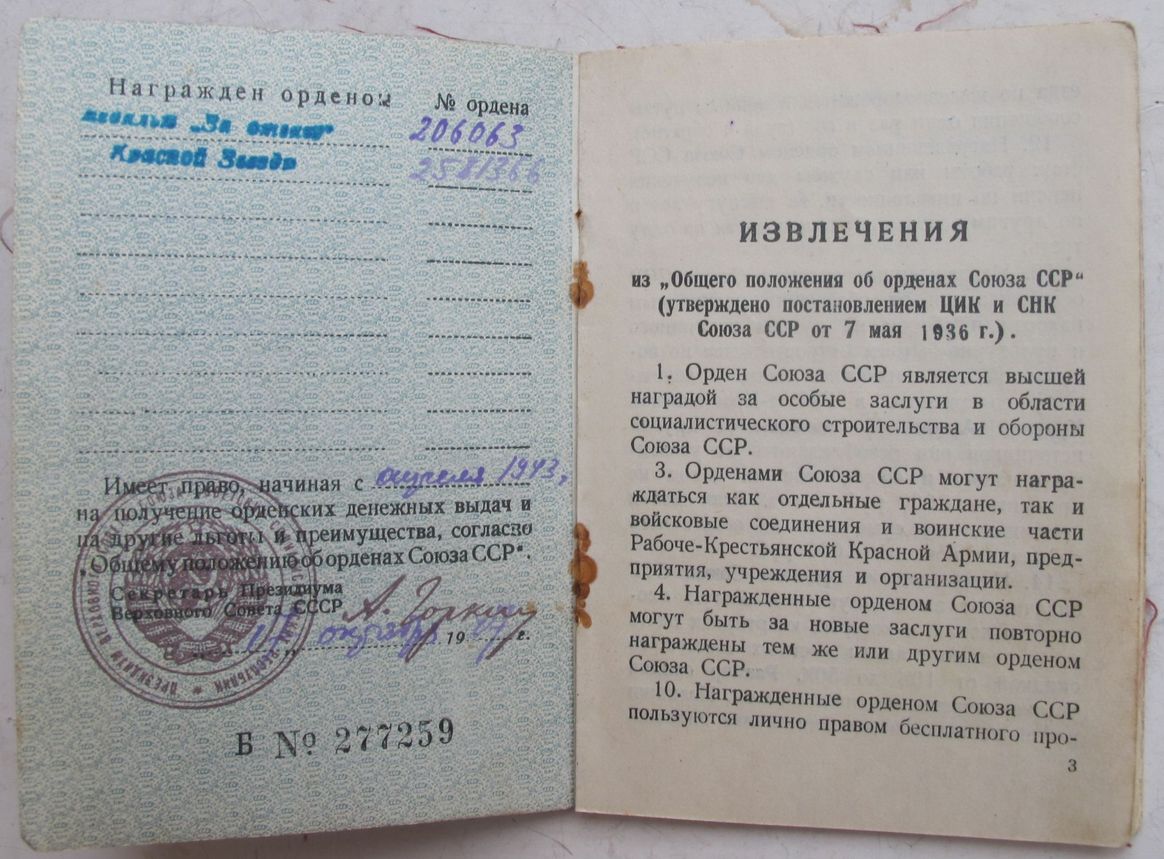 Награжден орденом
№ ордена
медалью „За отвагу"
206063
Красной Звезды
2581366
Имеет право, начиная с апреля 1943 г.
на получение орденских денежных выдач и
на другие льготы и преимущества, согласно
„Общему положению об орденах Союза ССР".
Секретарь Президиума
Верховного Совета СССР А. Горкин
17 октября 1947 г.
Б № 277259
ИЗВЛЕЧЕНИЯ
из „Общего положения об орденах Союза ССР"
(утверждено постановлением ЦИК и СНК
Союза ССР от 7 мая 1936 г.).
1. Орден Союза ССР является высшей
наградой за особые заслуги в области
социалистического строительства и обороны
Союза ССР.
3. Орденами Союза ССР могут награ-
ждаться как отдельные граждане, так и
войсковые соединения и воинские части
Рабоче-Крестьянской Красной Армии, пред-
приятия, учреждения и организации.
4. Награжденные орденом Союза ССР
могут быть за новые заслуги повторно
награждены тем же или другим орденом
Союза ССР.
10. Награжденные орденом Союза ССР
пользуются лично правом бесплатного про-
3